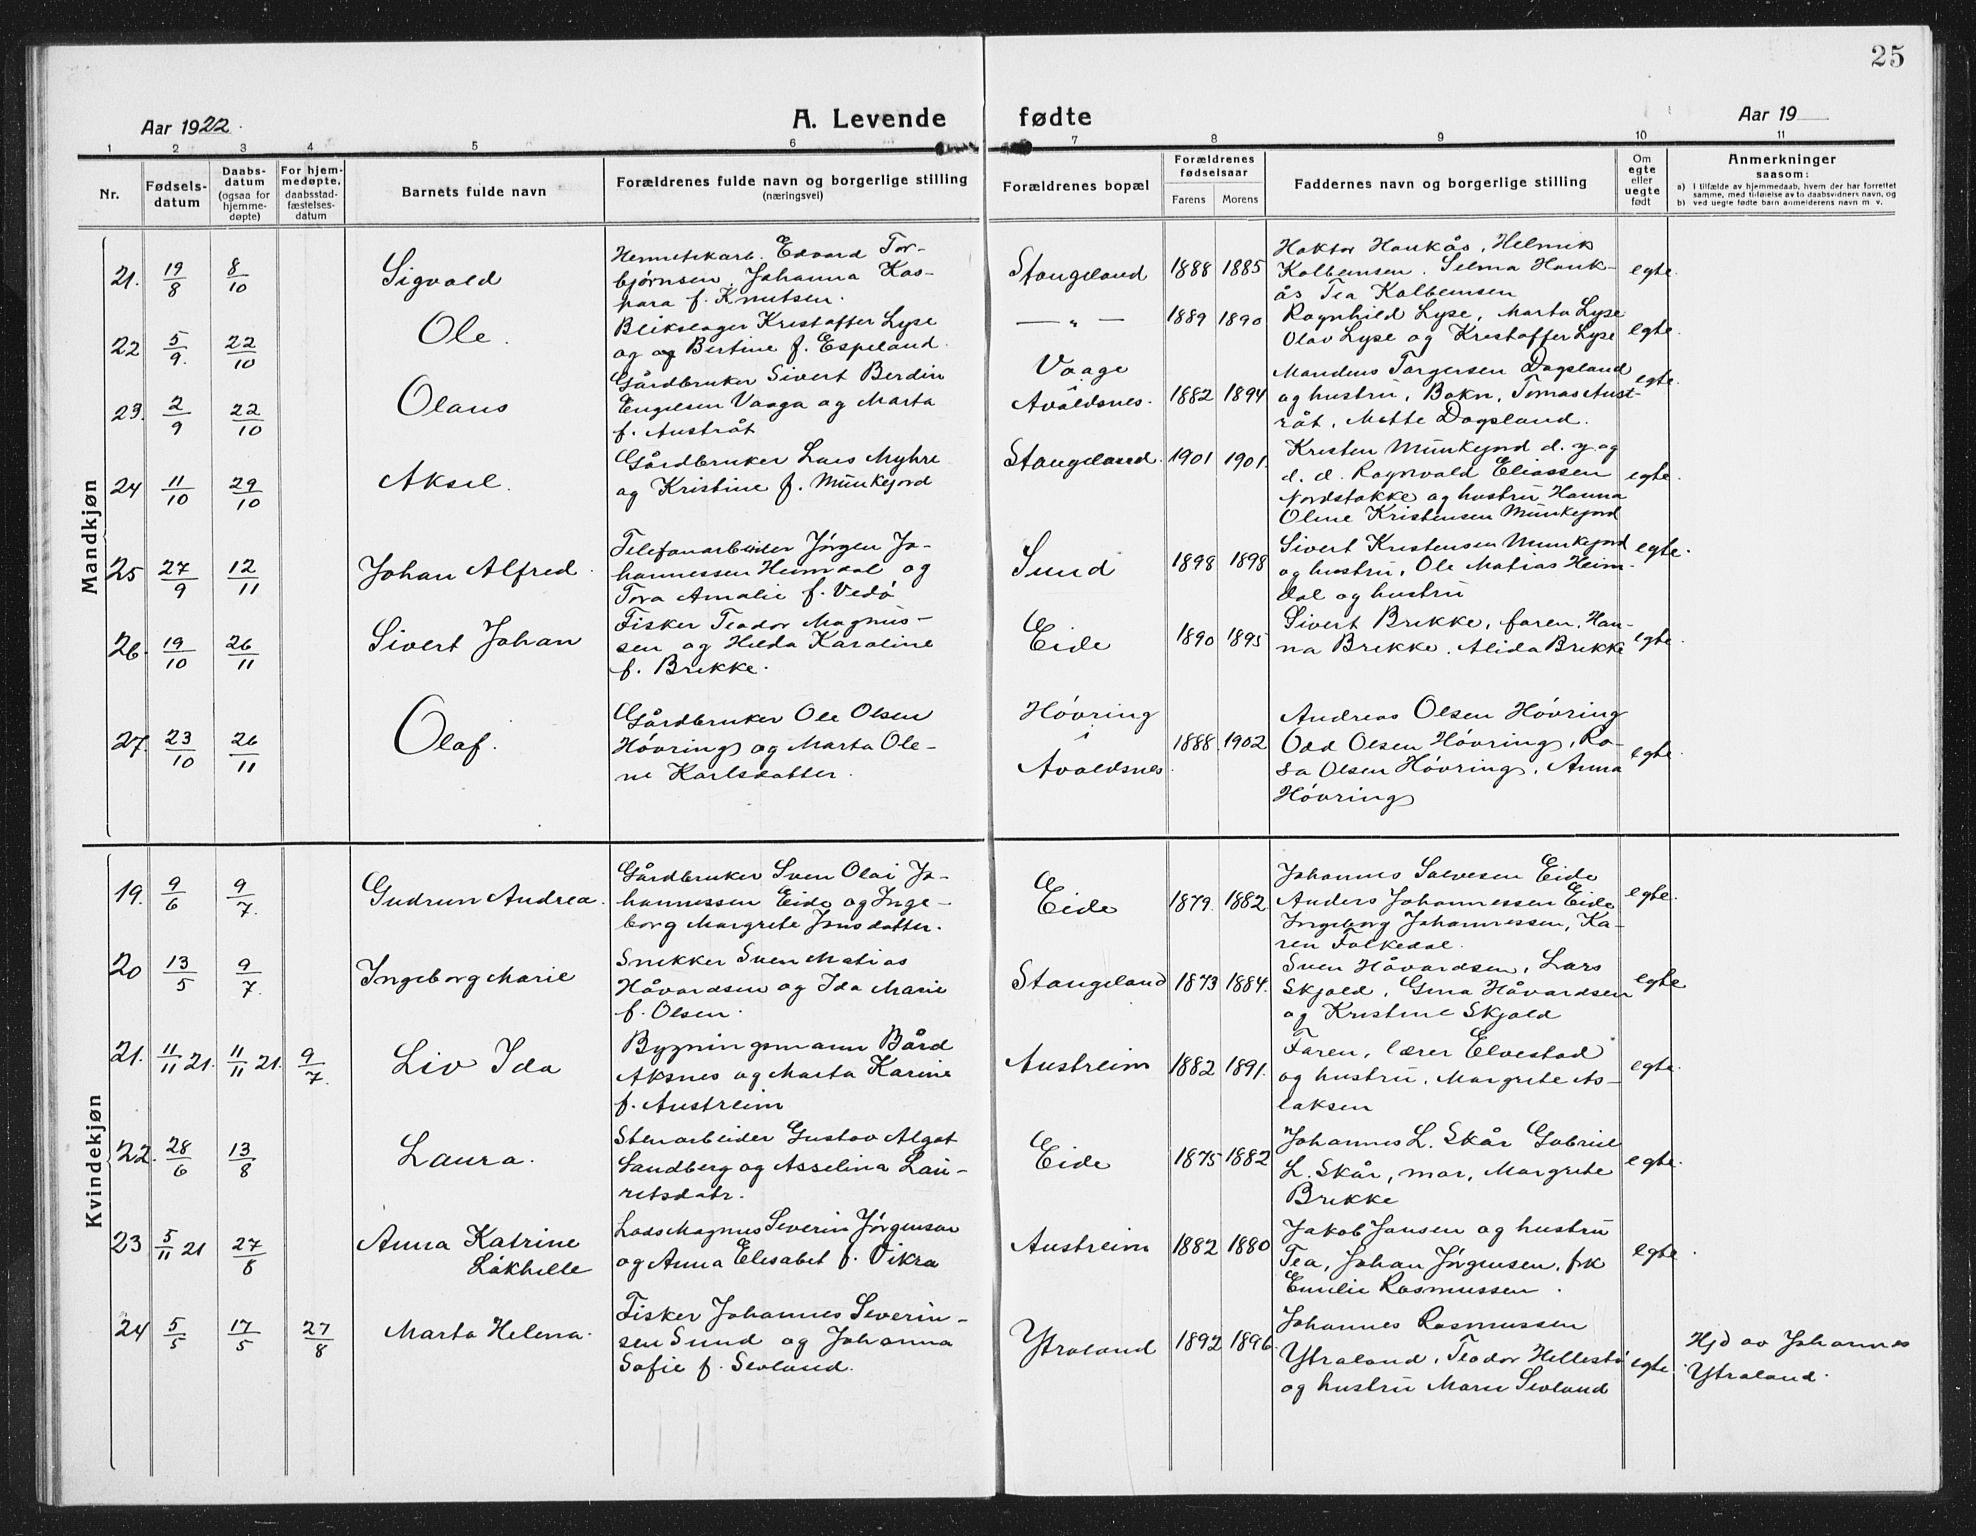 25
Aar 1922.
A. Levende fødte
Aar 19
1 2 3 4 5 6 7 8 9 10 11
Nr.
Fødselsdatum
Daabsdatum (ogsaa for hjemmedøpte)
For hjemmedøpte, daabsstadfæstelsesdatum
Barnets fulde navn
Forældrenes fulde navn og borgerlige stilling (næringsvei)
Forældrenes bopæl
Forældrenes fødselsaar
Farens Morens
Faddernes navn og borgerlige stilling
Om egte eller uegte født
Anmerkninger saasom:
a) I tilfælde av hjemmedaab, hvem der har forrettet samme, med tilføielse av to daabsvidners navn, og
b) ved uegte fødte barn anmelderens navn m. v.
Mandkjøn
21. 19/8 8/10 Sigvald
Hermetikarb. Edvard Tor-
bjørnsen, Johanna Kas-
para f. Knutsen.
Stangeland 1888 1885
Haktor Haukås, Helmik
Kolbeinsen. Selma Hauk-
ås Tea Kolbeinsen
egte.
22 5/9. 22/10 Ole.
Blikslager Kristoffer Lyse
og og Bertine f. Espeland.
— „ — 1889 1890
Ragnhild Lyse, Marta Lyse
Olav Lyse og Kristoffer Lyse
egte.
23. 2/9 22/10 Olaus
Gårdbruker Sivert Berdin
Engelsen Vaaga og Marta
f. Austråt
Vaage
i
Avaldsnes. 1882 1894
Mandius Torgersen Dagsland
og hustru, Bokn, Tomas Aust-
råt, Mette Dagsland.
egte.
24 11/10 29/10 Aksel.
Gårdbruker Lars Myhre
og Kristine f. Munkejord
Stangeland. 1901 1901.
Kristen Munkejord d. y. og
d. d. Ragnvald Eliassen
Nordstokke og hustru Hanna
Oline Kristensen Munkejord
egte.
25 27/9 12/11 Johan Alfred.
Telefonarbeider Jørgen Jo-
hannessen Heimdal og
Tora Amalie f. Vedø
Sund 1898 1898
Sivert Kristensen Munkejord
og hustru, Ole Matias Heim-
dal og hustru
egte.
26. 19/10 26/11 Sivert Johan
Fisker Teodor Magnus-
sen og Hilda Karoline
f. Brekke.
Eide 1890 1895
Sivert Brekke, faren, Han-
na Brekke, Alida Brekke
egte.
27. 23/10 26/11 Olaf.
Gårdbruker Ole Olsen
Høvring og Marta Ole-
ne Karlsdatter.
Høvring
i
Avaldsnes. 1888. 1902
Andreas Olsen Høvring
Odd Olsen Høvring, Ro-
sa Olsen Høvring, Anna
Høvring
egte.
Kvindekjøn
19. 9/6 9/7. Gudrun Andrea.
Gårdbruker Sven Olai Jo-
hannessen Eide og Inge-
borg Margrete Jonsdatter.
Eide 1879. 1882
Johannes Salvesen Eide
Anders Johannessen Eide
Ingeborg Johannessen, Ka-
ren Falkedal.
egte.
20 13/5 9/7. Ingeborg Marie
Snekker Sven Matias
Håvardsen og Ida Marie
f. Olsen.
Stangeland 1873 1884.
Sven Håvardsen, Lars
Skjold, Gina Håvardsen
og Kristine Skjold
egte
21. 11/11 21. 11/11 21. 9/7. Liv Ida
Bygningsmann Bård
Aksnes og Marta Karine
f. Austreim
Austreim 1882 1891.
Faren, lærer Elvestad
og hustru, Margrete As-
laksen
egte.
22. 28/6 13/8 Laura.
Stenarbeider Gustav Algot
Sandberg og Asselina Lau-
ritsdatr.
Eide 1875 1882
Johannes L. Skår Gabriel
L. Skår, mor, Margrete
Brekke
egte.
23 5/11 21 27/8 Anna Katrine
Låkhelle
Lods Magnus Severin Jørgensen
og Anna Elisabet f. Vikra
Austreim 1882 1880
Jakob Jansen og hustru
Tea, Johan Jørgensen, frk
Emilie Rasmussen.
egte.
24 5/5 17/5 27/8 Marta Helena.
Fisker Johannes Severin-
sen Sund og Johanna
Sofie f. Sevland.
Ytraland 1892 1896
Johannes Rasmussen
Ytraland, Teodor Hellestø
og hustru Marie Sevland
egte.
Hjd av Johannes
Ytraland.